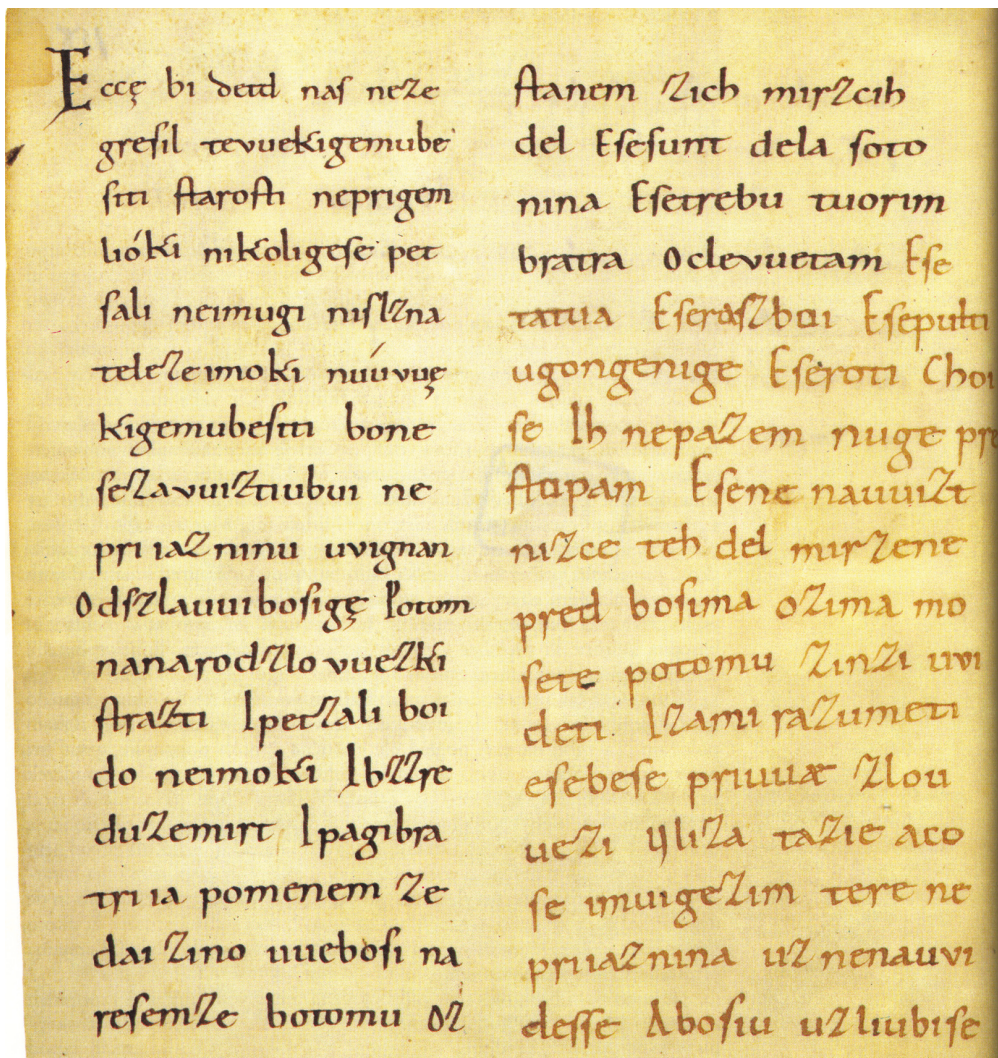 Eccę bi detd naſ neze
greſil tevuekigemube
ſiti ſtaroſti neprigem
lióki nikoligeſe pet
ſali neimugi niſlzna
teleze imoki nuúvuę
kigemubeſiti bone
ſezavuiztiubui ne
pri iazninu uvignan
Odſzlauuiboſigę Potom
nanarodzlovuezki
ſtrazti Ipetzali boi
do neimoki Ibzzre
duzemirt Ipagibra
tri ia pomenem ze
dai zino uueboſi na
reſemze botomu oz
ſtanem zich mirzcih
del Eſeſunt dela ſoto
nina Eſetrebu tuorim
bratra Oclevuetam Eſe
tatua Eſerazboi Eſepulti
ugongenige Eſeroti Choi
ſe Ih nepazem nuge pre
ſtopam Eſene nauuizt
nizce teh del mirzene
pred boſima ozima mo
ſete potomu zinzi uvi
deti Izami razumeti
eſebeſe priuuæ zlou
uezi Vliza tazie aco
ſe imuigezim tere ne
priiaznina uz nenauvi
deſſe Aboſiu uzliubiſe